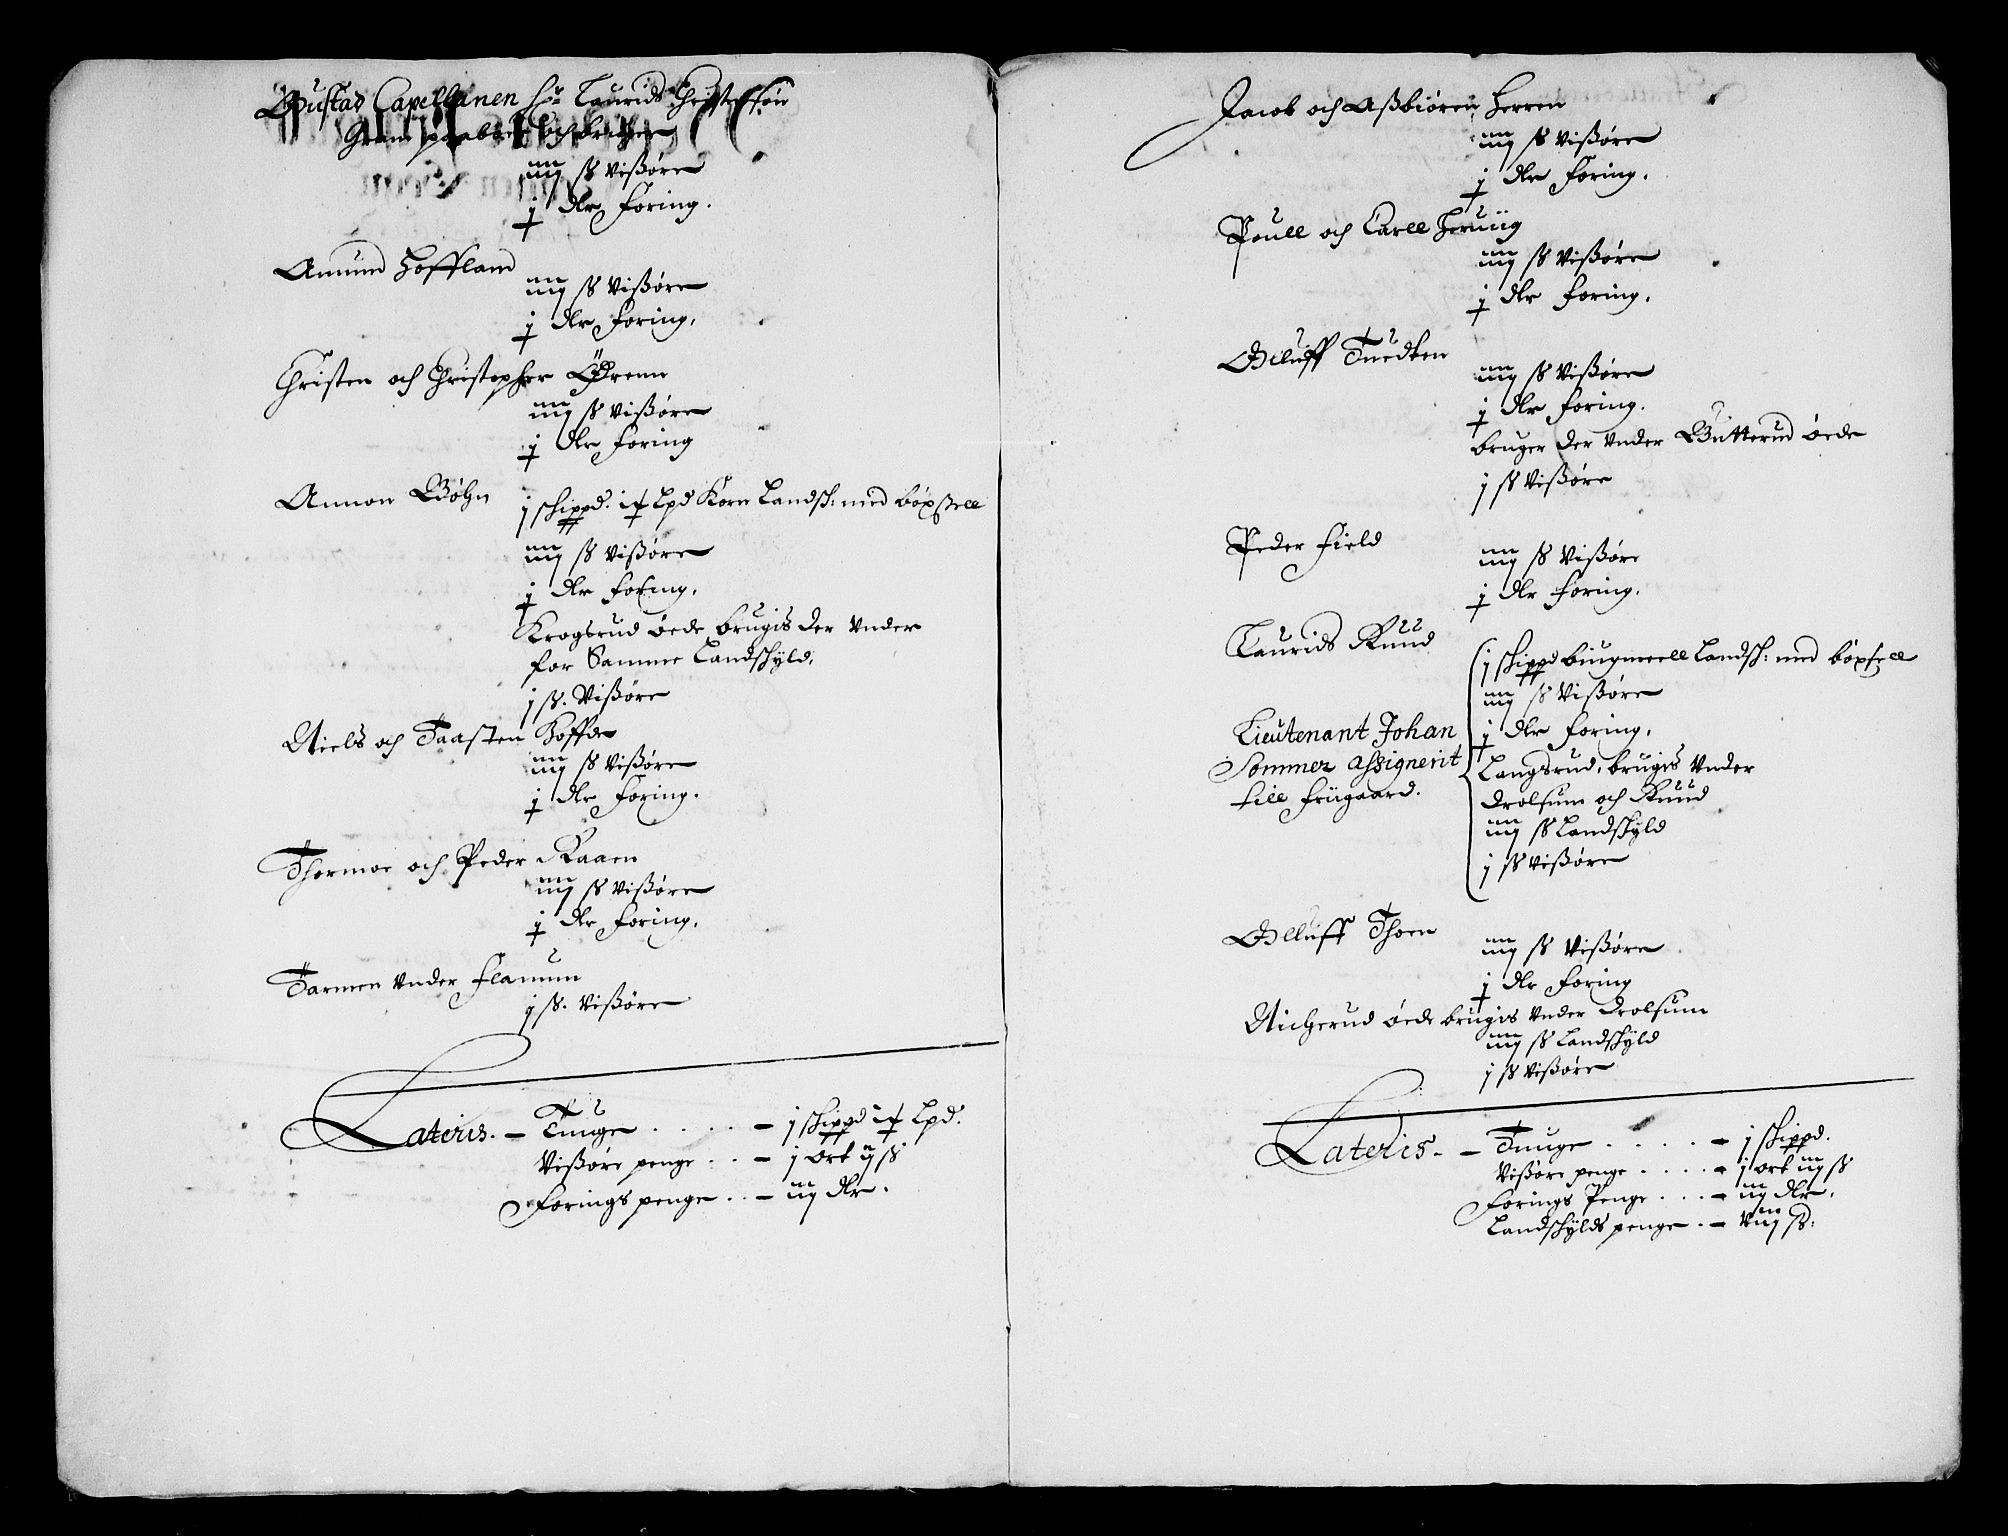 Gustas Capellanen hr Laurids Christensøn
och bruger
iiij ß Vißøre
j dlr Foring.
Amund Hoffland
iiij ß Vißøre
j dlr Foring.
Christen och Christopher Ørenn
iiij ß Vißøre
j dlr Foring
Annon Bøhn
j schippd. Lpd Korn Landsch: med böxsell
iiij ß Vißøre
j dlr Foring.
Krogsrud øede brugis der Vnder
for Samme Landschyld.
j ß. Vißøre
Niels och Taasten Hoffde
iiij ß Vißøre
j dlr Foring.
Thormoe och Peder Raaen
iiij ß Vißøre
j dlr Foring.
Tarmen Vnder Flannum
j ß. Vißøre
Lateris. – Tunge . . . . – j schippd Lpd.
Vißøre penge . . – j ort ij ß
Forings penge . . – iij dlr.
Jacob och Aßbiøren Herren
iiij ß Vißøre
j dlr Foring.
Poull och Carll Heruiig
iiij ß Vißøre
j dlr Foring.
Olluff Tuedten
iiij ß Vißøre
j dlr Foring.
bruger der Vnder Gutterud øede
j ß Vißøre
Peder Field
iiij ß Vißøre
j dlr Foring.
Laurids Ruud
j schippd biugmeell Landsch: med böxsell
iiij ß Vißøre
j dlr Foring.
Lieutenant Johan
Sommer assignerit
till friigaard.
Langsrud, brugis Vnder
Drolsum och Ruud
iiij ß Landschyld
j ß Vißøre
Olluff Thoen
iiij ß Vißøre
j dlr Foring
Nicherud øede brugis Vnder Drolsum
iiij ß Landschyld
j ß Vißøre
Lateris. – Tunge . . . . – j schippd.
Vißøre penge . . . . – j ort iij ß
Forings Penge . . . – iij dlr.
Landschylds penge . – Viij ß: